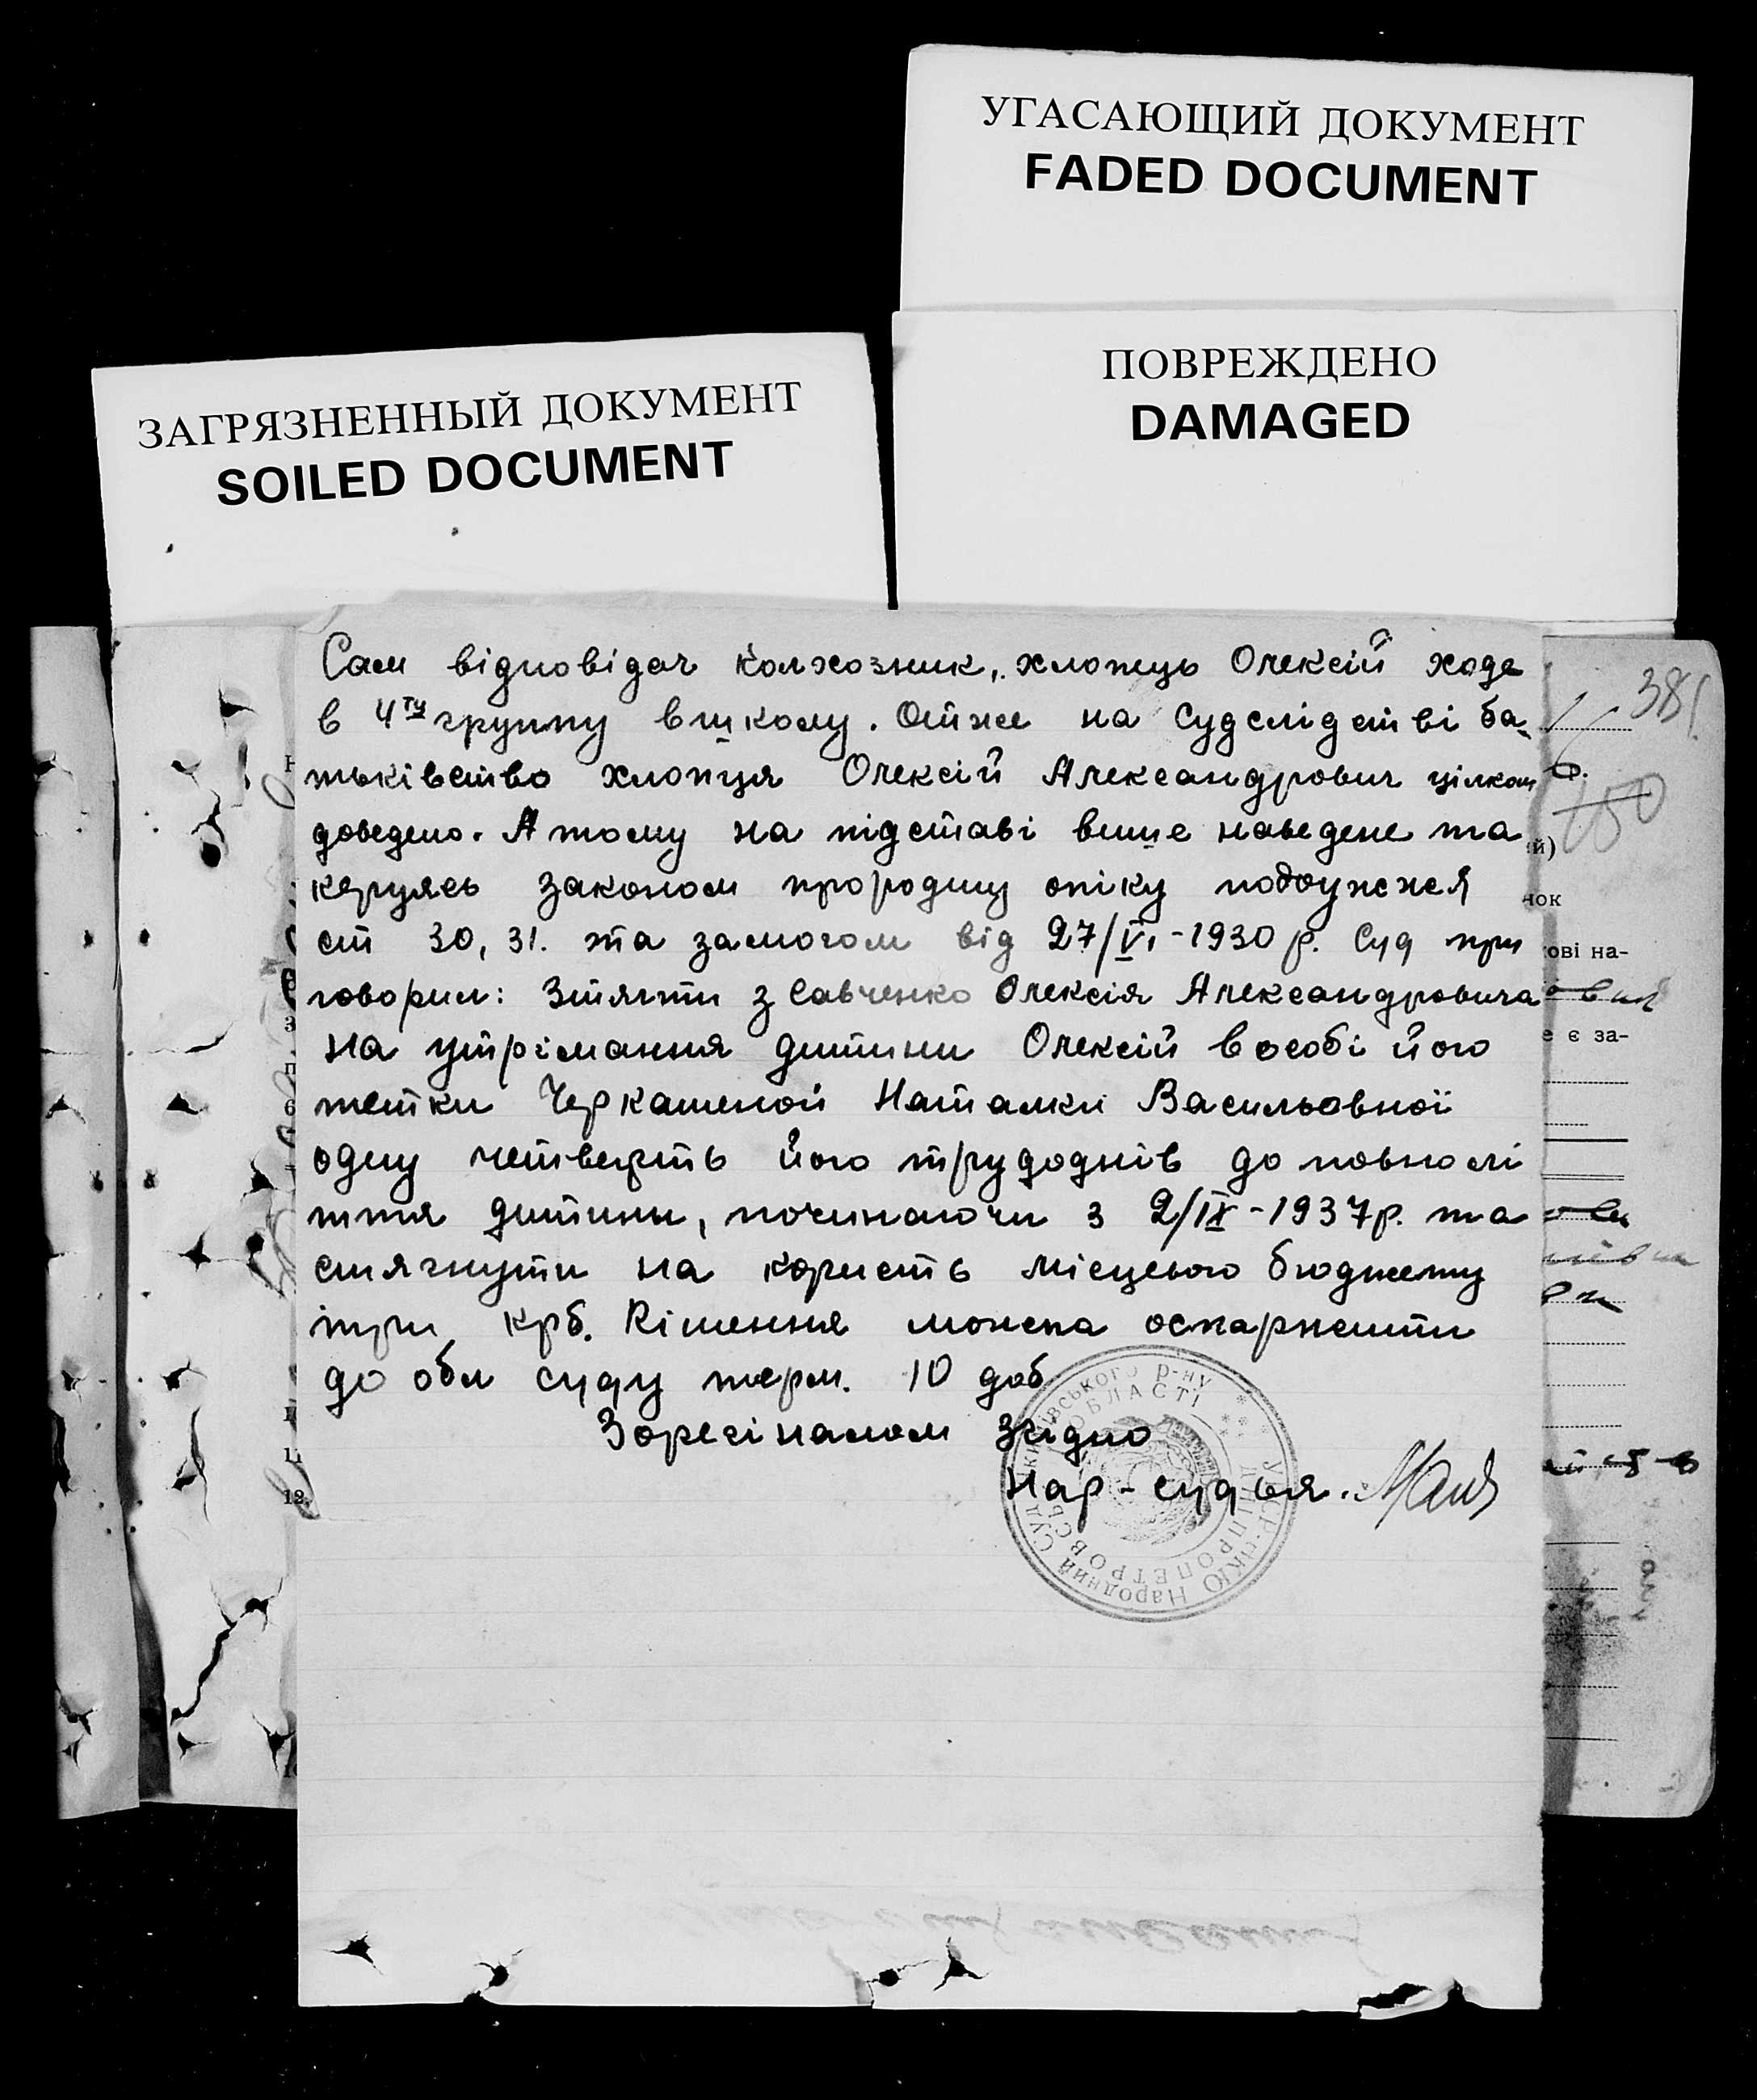 УГАСАЮЩИЙ ДОКУМЕНТ
FADED DOCUMENT
ПОВРЕЖДЕНО
DAMAGED
ЗАГРЯЗНЕННЫЙ ДОКУМЕНТ
SOILED DOCUMENT
381
150
Сам відповідач колхозник, хлопець Олексій ходе
в 4ту группу вшколу. Отже на судслідстві ба-
тьківство хлопця Олексій Александрович цілком
доведено. А тому на підставі вище наведене та
керуясь законом прородину опіку подружжя
ст 30, 31. та замогом від 27/VI-1930 р. Суд при
говорил: Зтягти з Савченко Олексія Александровича
на утрімання дитини Олексій в особі його
тетки Черкашеной Наталки Васильовної
одну четверть його трудоднів до повнолі
ття дитини, починаючи з 2/IX-1937р. та
стягнути на користь місцевого бюджету
три крб. Рішення можна оскаржити
до обл суду терм. 10 доб
Зорегіналом Згідно
Нар-судья.
Народний Суд
ського р-ну
ОБЛАСТІ
ДНІПРОПЕТРОВСЬ
УСРР-НКЮ
й)
нок
ові на-
е є за-
12.